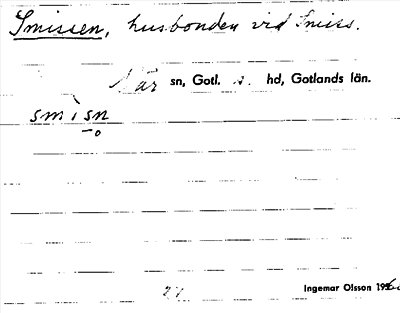 Smissen, husbonden vid Smiss.
När sn, Gotl. s. hd, Gotlands län.
smìsn
27
Ingemar Olsson 1960